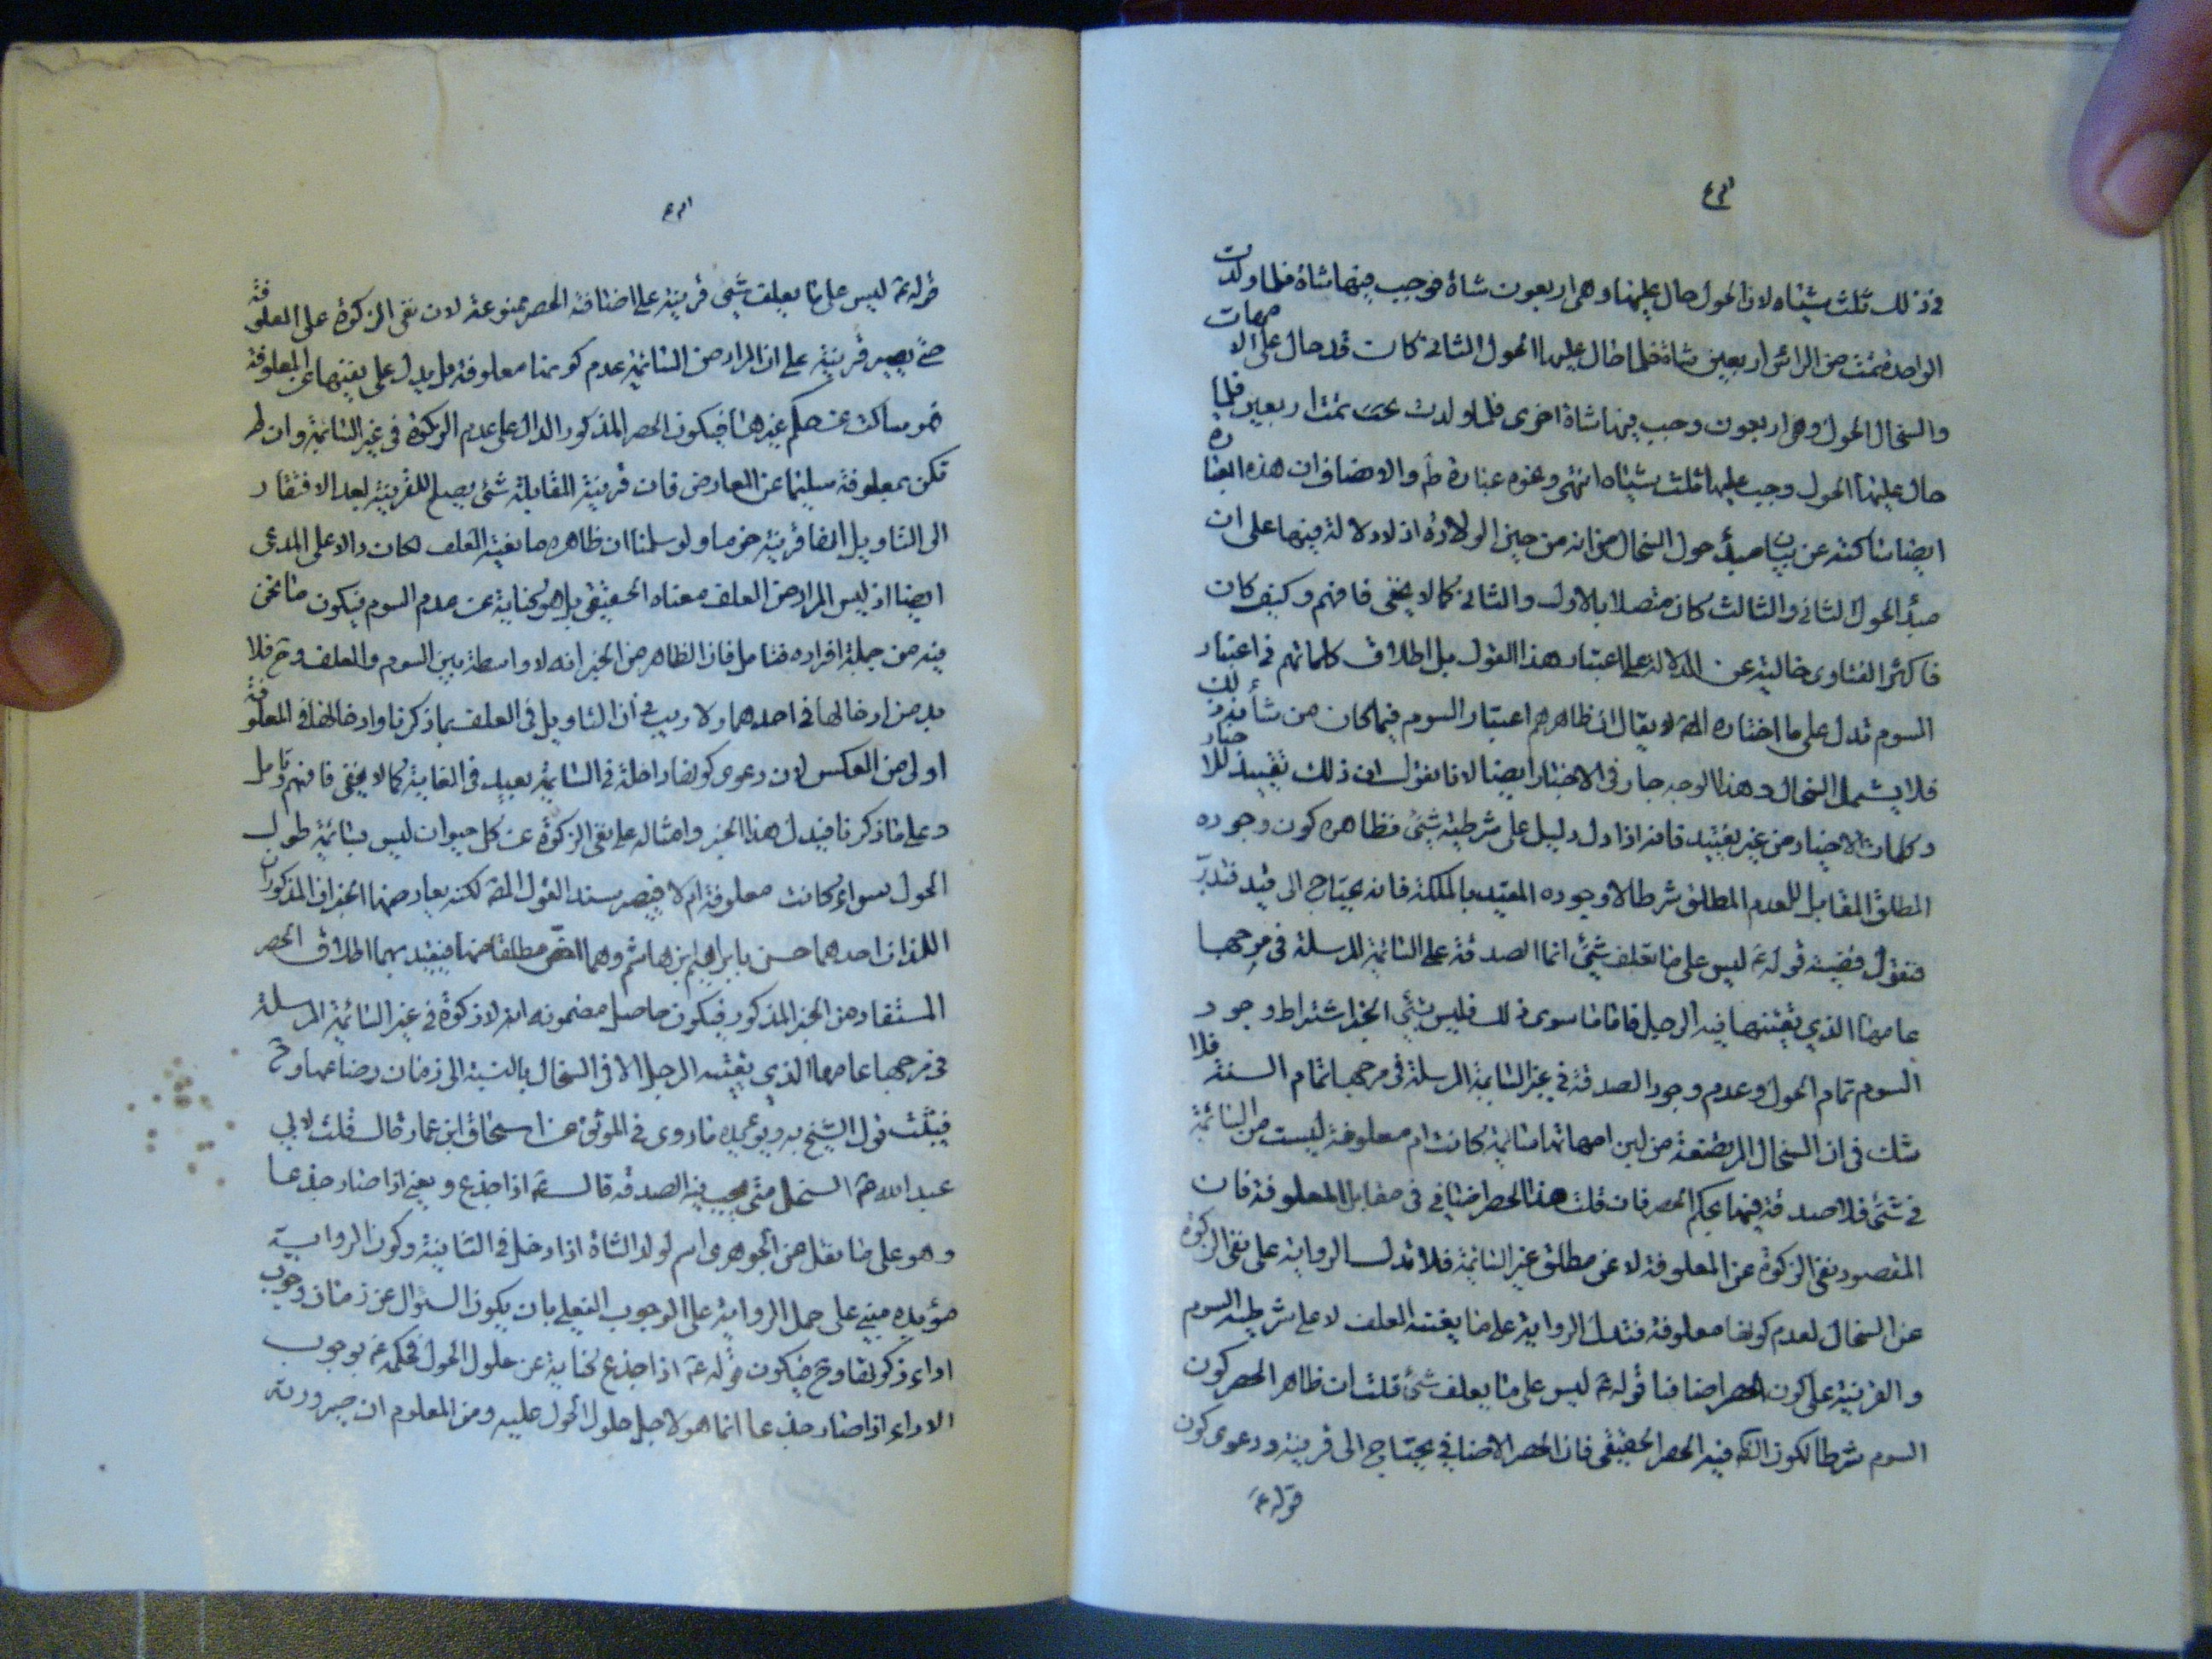 في ذلك ثلث شياه لان الحول حال عليها وهي اربعون شاة فوجب فيها شاة فلما ولدت
الواحدة تمت من الرأس اربعين شاة فلما حال عليها الحول الثاني كانت قد حال على الامهات
والسخال الحول وهي اربعون وجب فيها شاة اخرى فلما ولدت تمت اربعين فلما
حال عليها الحول وجب عليها ثلث شياه انتهى ونحوه عبارة والانصاف ان هذه العبارة
ايضا ساكتة عن بيان مبدأ حول السخال من انه من حين الولادة اذ لا دلالة فيها على ان
مبدأ الحول الثاني والثالث كان متصلا بالاول والثاني كما لا يخفى فافهم وكيف كان
فاكثر الفتاوى خالية عن الدلالة على اعتبار هذا القول بل اطلاق كلماتهم في اعتبار
السوم تدل على ما اختاره المص لا يقال ان ظاهرهم اعتبار السوم فيما كان من شأنه ذلك
فلا يشمل السخال وهذا الوجه جار في الاخبار ايضا لانا نقول ان ذلك تقييد للاخبار
وكلمات الاخيار من غير تقييد فانه اذا دل دليل على شرطية شئ فظاهره كون وجوده
المطلق المقابل للعدم المطلق شرطا لا وجوده المقيد بالملكة فانه يحتاج الى قيد فتدبر
فنقول قضية قوله ع ليس على ما تعلف شئ انما الصدقة على السائمة المرسلة في مرجها
عامها الذي يقتنيها فيه الرجل فاما ما سوى ذلك فليس شئ الخ اشتراط وجود
السوم تمام الحول وعدم وجود الصدقة في غير السائمة المرسلة في مرجها تمام السنة فلا
شك في ان السخال المرتضعة من لبن امهاتها سائمة كانت ام معلوفة ليست من السائمة
في شئ فلا صدقة فيها بحكم الحصر فان قلت هذا الحصر اضافي في مقابل المعلوفة فان
المقصود نفي الزكوة عن المعلوفة لا عن مطلق غير السائمة فلا تدل الرواية على نفي الزكوة
عن السخال لعدم كونها معلوفة فتدل الرواية على مانعية العلف لا على شرطية السوم
والقرينة على كون الحصر اضافيا قوله ع ليس على ما يعلف شئ قلت ان ظاهر الحصر كون
السوم شرطا لكون فيه الحصر الحقيقي فان الحصر الاضافي يحتاج الى قرينة ودعوى كون
قوله ع
قوله ع ليس على ما يعلف شئ قرينة على اضافة الحصر ممنوعة لان نفي الزكوة على المعلوفة
يصير قرينة على ان المراد من السائمة عدم كونها معلوفة بل يدل على نفيها عن المعلوفة
فهو ساكت عن حكم غيرها فيكون الحصر المذكور الدال على عدم الزكوة في غير السائمة وان لم
تكن بمعلوفة سليما عن المعارض فان قرينة المقابلة شئ يصلح للقرينة بعد الافتقار
الى التاويل انها قرينة خوصا ولو سلمنا ان ظاهره مانعية العلف لكان دالا على المدعى
ايضا اذ ليس المراد من العلف معناه الحقيقي بل هو كناية عن عدم السوم فيكون ما نحن
فيه من جملة افراده فتامل فان الظاهر من الخبر انه لا واسطة بين السوم والعلف وح فلا
بد من ادخالها في احدهما ولا ريب في ان التاويل في العلف بما ذكرنا وادخالها في المعلوفة
اولى من العكس لان دعوى كونها داخلة في السائمة بعيد في الغاية كما لا يخفى فافهم وتامل
وعلى ما ذكرنا فيدل هذا الخبر وامثاله على نفي الزكوة عن كل حيوان ليس بسائمة طول
الحول سواء كانت معلوفة ام لا فيصير سند القول المص لكنه يعارضها الخبران المذكوران
اللذان احدهما حسن بابراهيم بن هاشم وهما اخص مطلقا منها فيقيد بهما اطلاق الحصر
المستفاد من الخبر المذكور فيكون حاصل مضمونه انه لا زكوة في غير السائمة المرسلة
في مرجها عامها الذي يقتنيه الرجل الا في السخال بالنسبة الى زمان رضاعها وح
فيثبت قول الشيخ به ويؤيده ما روى في الموثق عن اسحاق ابن عمار قال قلت لابي
عبد الله ع السخل متى يجب فيه الصدقة قال ع اذا جذع ويعني اذا صار جذعا
وهو على ما نقل من الجوهرى اسم لولد الشاة اذا دخل في الثانية وكون الرواية
مؤيدة مبني على حمل الرواية على الوجوب الفعلي بان يكون السؤال عن زمان وجوب
اداء زكوتها وح فيكون قوله ع اذا جذع كناية عن حلول الحول فحكمه ع بوجوب
الاداء اذا صار جذعا انما هو لاجل حلول الحول عليه ومن المعلوم ان صيرورته